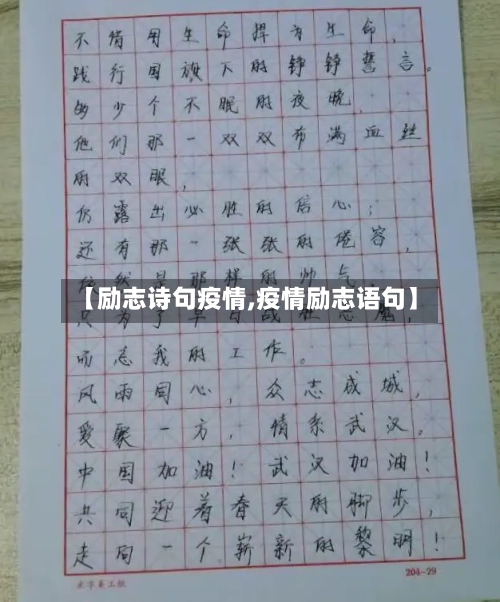 不惜用生命捍卫生命,
践行国旗下的铮铮誓言。
多少个不眠的夜晚,
他们那一双双布满血丝
的双眼,
仍露出必胜的信心;
还有那一张张的倦容,
依然是那样的帅气
【励志诗句疫情,疫情励志语句】
忘我的工作。
风雨同心,众志成城,
爱聚一方,情系武汉。
中国加油!武汉加油!
共同迎着春天的脚步,
走向一个崭新的黎明!
米字美工纸
204-29